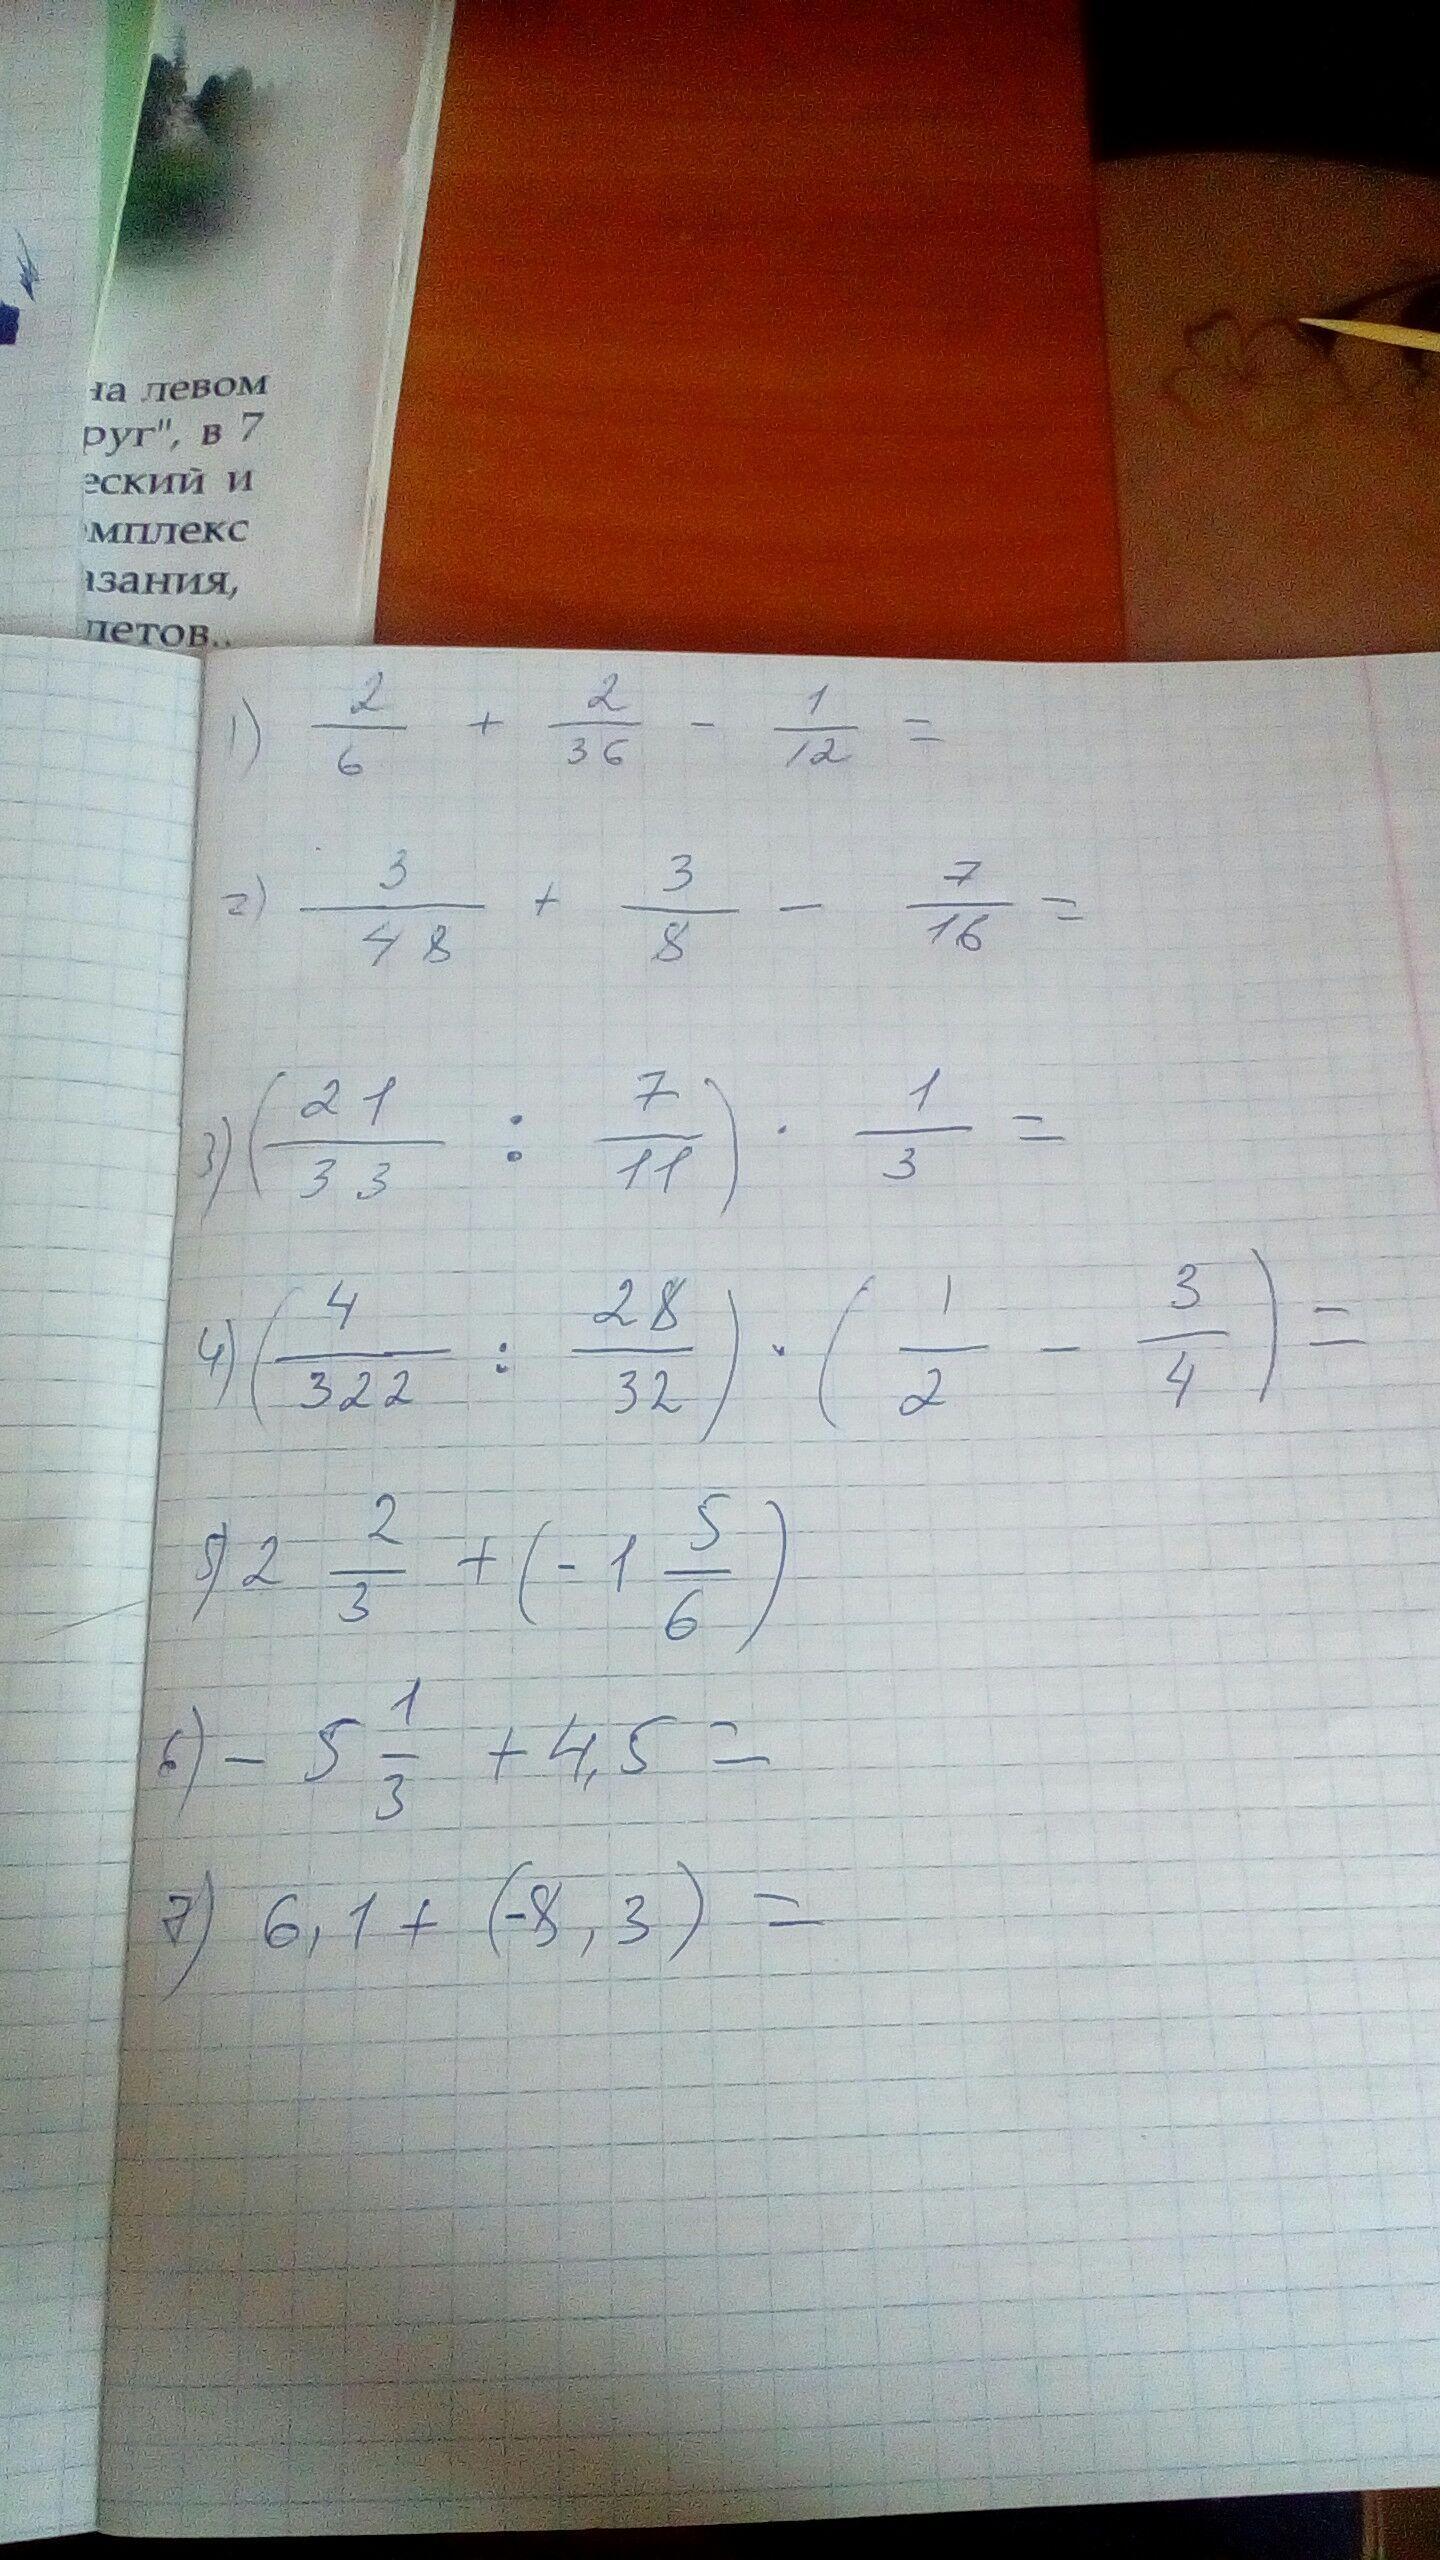 на левом
руг", в 7
еский и
мплекс
азания,
летов..
1) 2/6 + 2/36 - 1/12 =
2) 3/48 + 3/8 - 7/16 =
3) (21/33 : 7/11) · 1/3 =
4) (4/322 : 28/32) · (1/2 - 3/4) =
5) 2 2/3 + (-1 5/6)
6) - 5 1/3 + 4,5 =
7) 6,1 + (-8,3) =